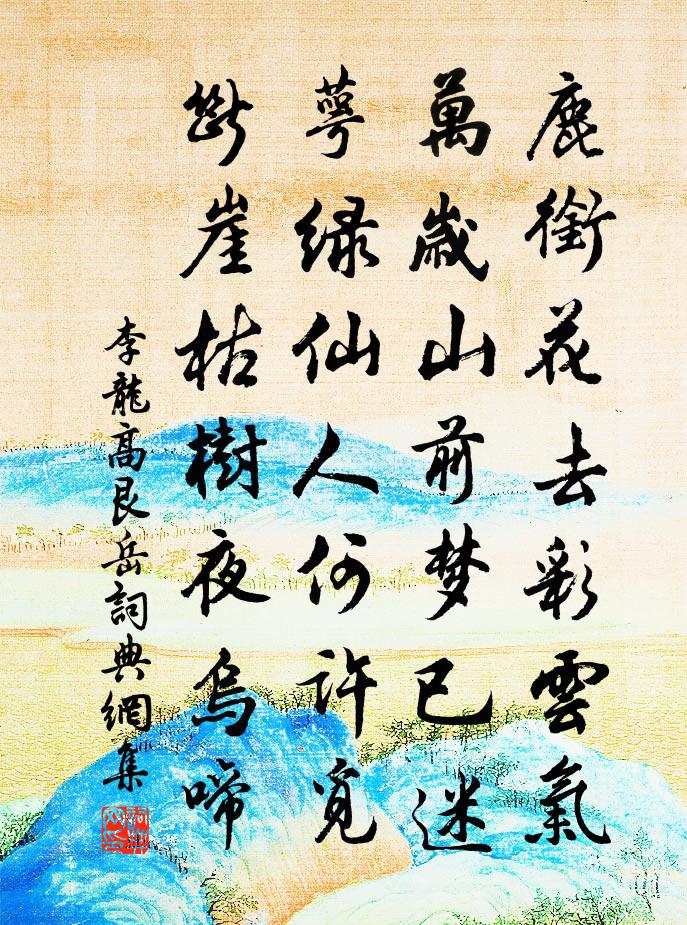 鹿銜花去彩雲氣
萬歲山前梦已迷
萼緑仙人何許覓
斷崖枯樹夜烏啼
李龍高艮岳詞典網集